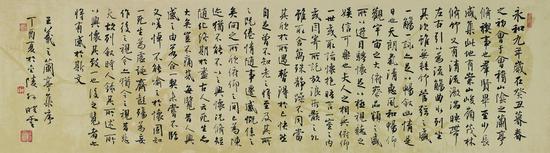 永和九年歲在癸丑暮春
之初會于會稽山陰之蘭亭
修禊事也群賢畢至少長
咸集此地有崇山峻領茂林
修竹又有清流激湍映帶
左右引以為流觴曲水列坐
其次雖無絲竹管弦之盛
一觴一詠亦足以暢敘幽情是
日也天朗氣清惠風和暢仰
觀宇宙之大俯察品類之盛
所以遊目騁懷足以極視聽之
娛信可樂也夫人之相與俯仰
一世或取諸懷抱悟言一室之內
或因寄所託放浪形骸之外
雖趣舍萬殊靜躁不同當
其欣於所遇暫得於己快然
自足不知老之將至及其所
之既倦情隨事遷感慨係之
矣向之所欣俛仰之間以為陳
迹猶不能不以之興懷況修短
隨化終期於盡古人云死生亦
大矣豈不痛哉每覽昔人興
感之由若合一契未嘗不臨
文嗟悼不能喻之於懷固知一
死生為虛誕齊彭殤為妄
作後之視今亦由今之視昔悲
夫故列敘時人錄其所述
所以興懷其致一也後之覽者亦
將有感於斯文
王羲之蘭亭集序
丁酉夏於